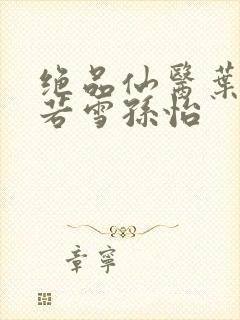 绝品仙醫葉
若雪孫怡
章寧